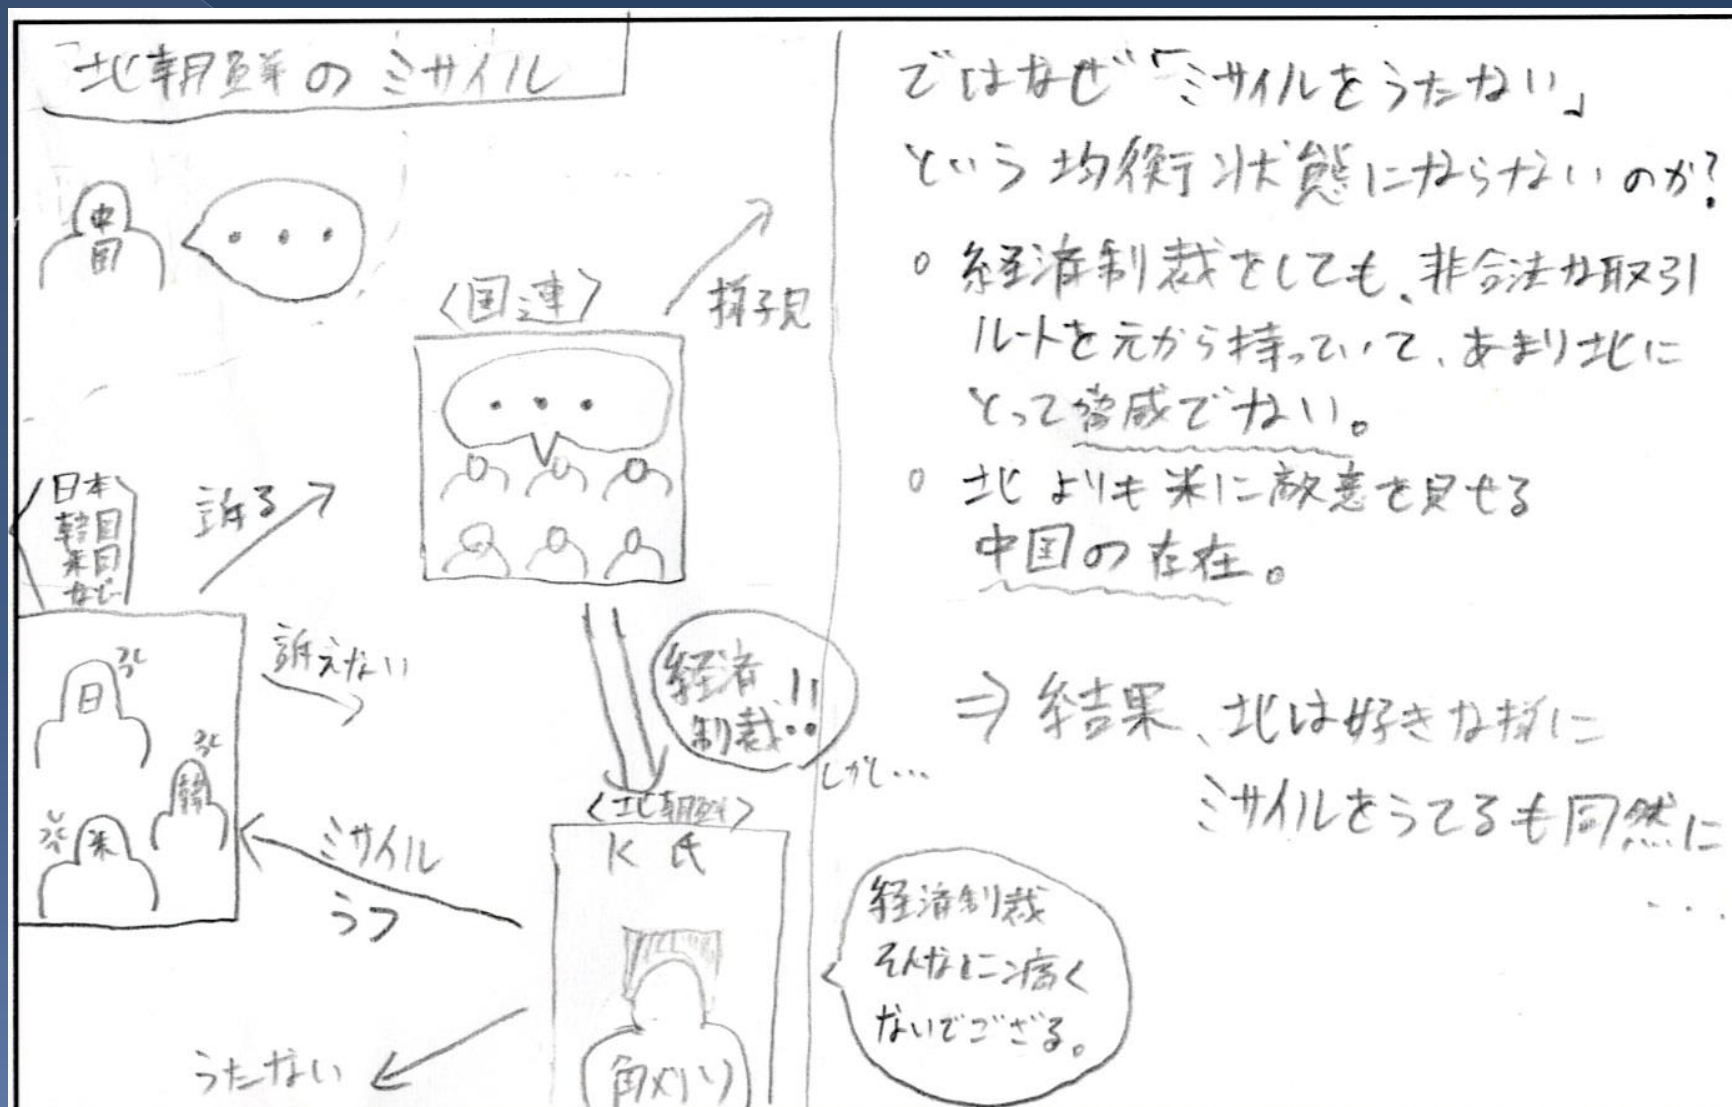 北朝鮮のミサイル
中国
・・・
〈国連〉
様子見
・・・
日本
韓国
米国
など
訴える
訴えない
日
韓
米
経済
制裁!!
しかし…
〈北朝鮮〉
K氏
ミサイル
うつ
うたない
経済制裁
そんなに痛く
ないでござる。
ではなぜ「ミサイルをうたない」
という均衡状態にならないのか?
○ 経済制裁をしても、非合法な取引
ルートを元から持っていて、あまり北に
とって脅威でない。
○ 北よりも米に敵意を見せる
中国の存在。
⇒ 結果、北は好きな様に
ミサイルをうてるも同然に
・・・